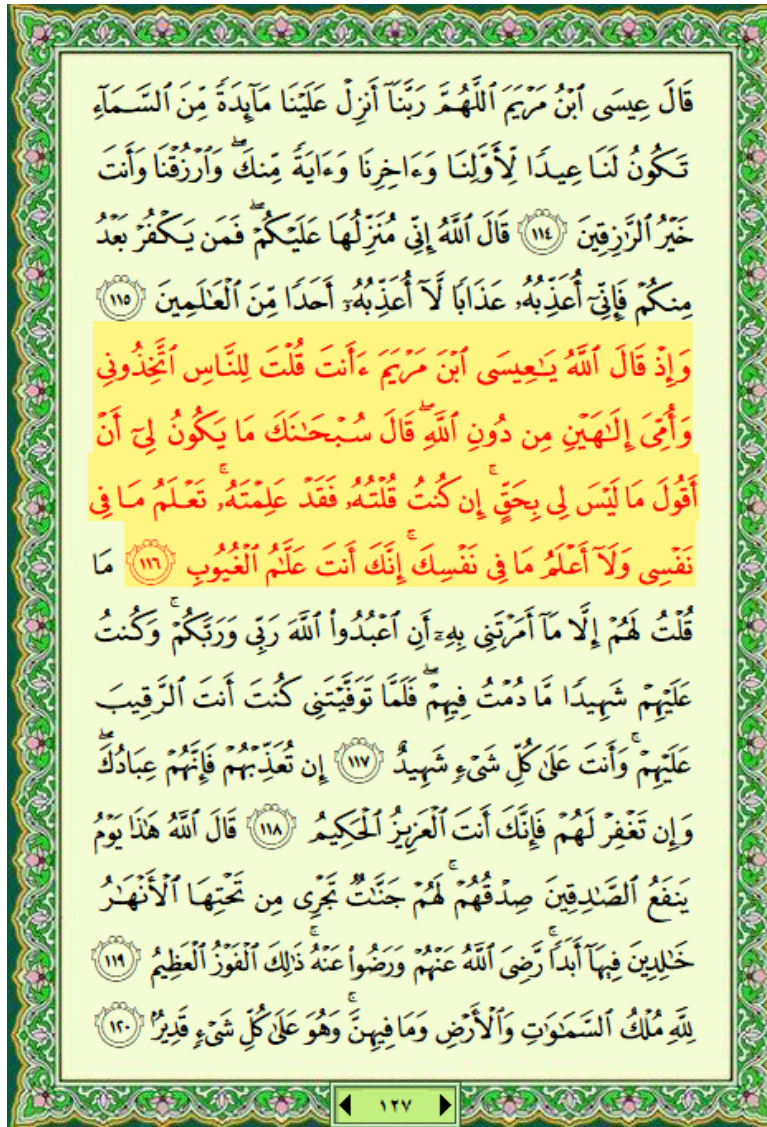 قَالَ عِيسَى ٱبۡنُ مَرۡيَمَ ٱللَّهُمَّ رَبَّنَآ أَنزِلۡ عَلَيۡنَا مَآئِدَةٗ مِّنَ ٱلسَّمَآءِ
تَكُونُ لَنَا عِيدٗا لِّأَوَّلِنَا وَءَاخِرِنَا وَءَايَةٗ مِّنكَۖ وَٱرۡزُقۡنَا وَأَنتَ
خَيۡرُ ٱلرَّٰزِقِينَ ١١٤ قَالَ ٱللَّهُ إِنِّي مُنَزِّلُهَا عَلَيۡكُمۡۖ فَمَن يَكۡفُرۡ بَعۡدُ
مِنكُمۡ فَإِنِّيٓ أُعَذِّبُهُۥ عَذَابٗا لَّآ أُعَذِّبُهُۥٓ أَحَدٗا مِّنَ ٱلۡعَٰلَمِينَ ١١٥
وَإِذۡ قَالَ ٱللَّهُ يَٰعِيسَى ٱبۡنَ مَرۡيَمَ ءَأَنتَ قُلۡتَ لِلنَّاسِ ٱتَّخِذُونِي
وَأُمِّيَ إِلَٰهَيۡنِ مِن دُونِ ٱللَّهِۖ قَالَ سُبۡحَٰنَكَ مَا يَكُونُ لِيٓ أَنۡ
أَقُولَ مَا لَيۡسَ لِي بِحَقٍّۚ إِن كُنتُ قُلۡتُهُۥ فَقَدۡ عَلِمۡتَهُۥۚ تَعۡلَمُ مَا فِي
نَفۡسِي وَلَآ أَعۡلَمُ مَا فِي نَفۡسِكَۚ إِنَّكَ أَنتَ عَلَّٰمُ ٱلۡغُيُوبِ ١١٦ مَا
قُلۡتُ لَهُمۡ إِلَّا مَآ أَمَرۡتَنِي بِهِۦٓ أَنِ ٱعۡبُدُواْ ٱللَّهَ رَبِّي وَرَبَّكُمۡۚ وَكُنتُ
عَلَيۡهِمۡ شَهِيدٗا مَّا دُمۡتُ فِيهِمۡۖ فَلَمَّا تَوَفَّيۡتَنِي كُنتَ أَنتَ ٱلرَّقِيبَ
عَلَيۡهِمۡۚ وَأَنتَ عَلَىٰ كُلِّ شَيۡءٖ شَهِيدٌ ١١٧ إِن تُعَذِّبۡهُمۡ فَإِنَّهُمۡ عِبَادُكَۖ
وَإِن تَغۡفِرۡ لَهُمۡ فَإِنَّكَ أَنتَ ٱلۡعَزِيزُ ٱلۡحَكِيمُ ١١٨ قَالَ ٱللَّهُ هَٰذَا يَوۡمُ
يَنفَعُ ٱلصَّٰدِقِينَ صِدۡقُهُمۡۚ لَهُمۡ جَنَّٰتٞ تَجۡرِي مِن تَحۡتِهَا ٱلۡأَنۡهَٰرُ
خَٰلِدِينَ فِيهَآ أَبَدٗاۚ رَّضِيَ ٱللَّهُ عَنۡهُمۡ وَرَضُواْ عَنۡهُۚ ذَٰلِكَ ٱلۡفَوۡزُ ٱلۡعَظِيمُ ١١٩
لِلَّهِ مُلۡكُ ٱلسَّمَٰوَٰتِ وَٱلۡأَرۡضِ وَمَا فِيهِنَّۚ وَهُوَ عَلَىٰ كُلِّ شَيۡءٖ قَدِيرُۢ ١٢٠
١٢٧